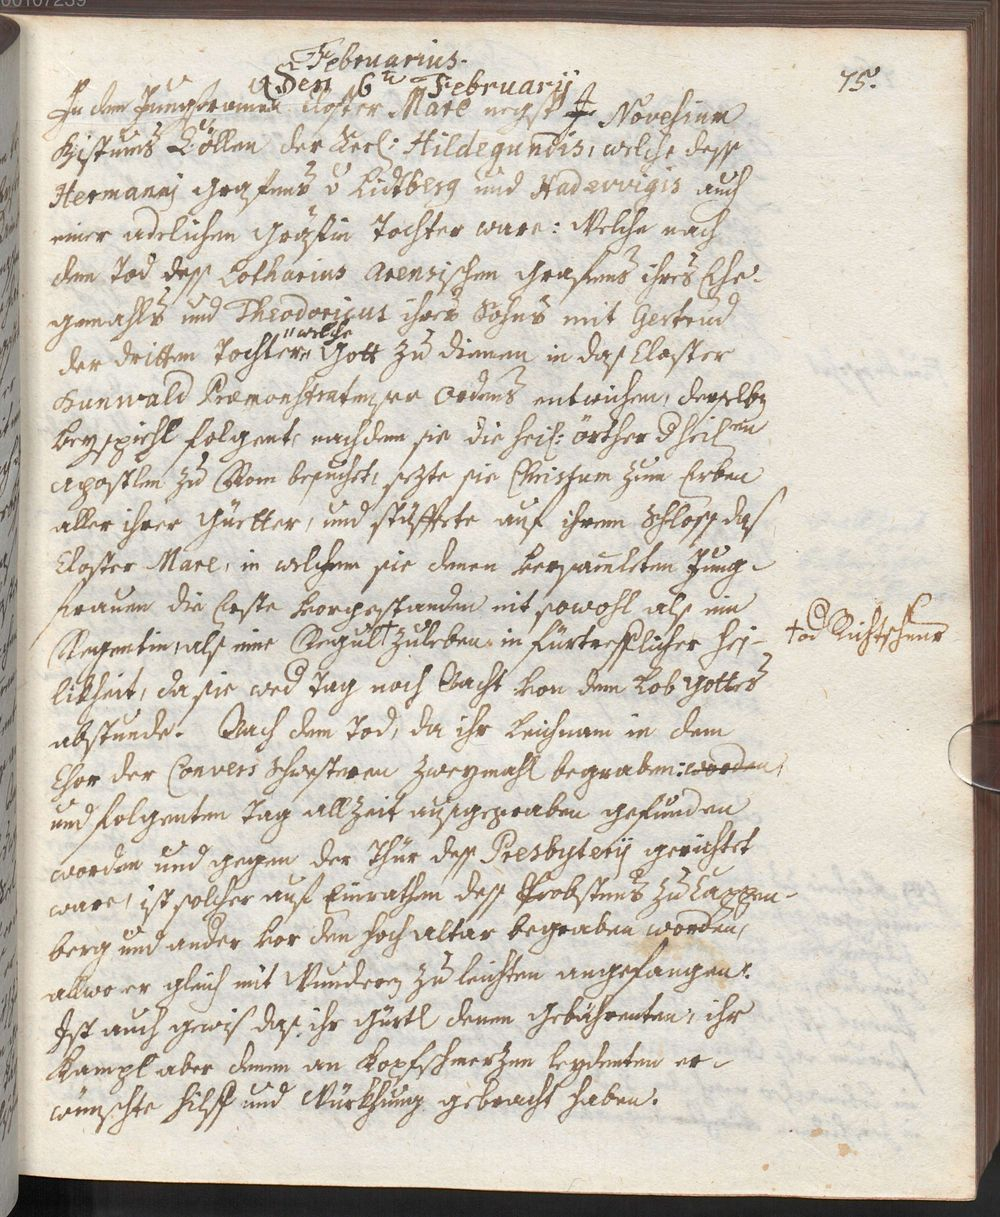 00107239
Februarius.
Den 6ten Februarij
75.
In dem Jungfrauen Closter Mare nechst Novesium
Bistums Cöllen der Seel: Hildegundis, welche dess
Hermanni Grafens v Lidtberg und Hadervigis auch
einer adelichen Gräfin Tochter ware: Welche nach
dem Tod dess Lotharius Arensischen Grafens ihres Ehe-
gemahls und Theodoricus ihres Sohns mit Gertrud
der dritten Tochter, welche Gott zu dienen in das Closter
Hunwald Præmonstratenser Ordens entwichen, derselben
beyspiehl folgent, nachdem sie die heil: örther d heilen
Apostlen zu Rom besucht, sezte sie Christum zum Erben
aller ihrer Güetter, und stüfftete auf ihrem Schloss das
Closter Mare, in welchem sie denen versamleten Jung-
frauen die Erste vorgestanden nit sowohl als ein
Regentin, als eine Regul † zuleben, in fürtrefflicher Hei-
† od Richtschnur
likheit, da sie wed Tag noch Nacht von dem Lob Gottes
abstunde. Nach dem Tod, da ihr Leichnam in dem
Chor der Convers Schwesteren zweymahl begraben: worden,
und folgenten Tag allzeit ausgegraben gefunden
worden und gegen der Thür dess Presbyterij gerichtet
ware, ist solcher auf Einrathen dess Probstens zu Cappen-
berg und ander vor den hoch altar begraben worden,
allwo er gleich mit Wunderen zu leichten angefangen.
Ist auch gewis das ihr Gürtl denen Gebährenten, ihr
Kampl aber denen an Kopfschmerzen leydenten er-
wünschte hilff und Würkhung gebracht haben.